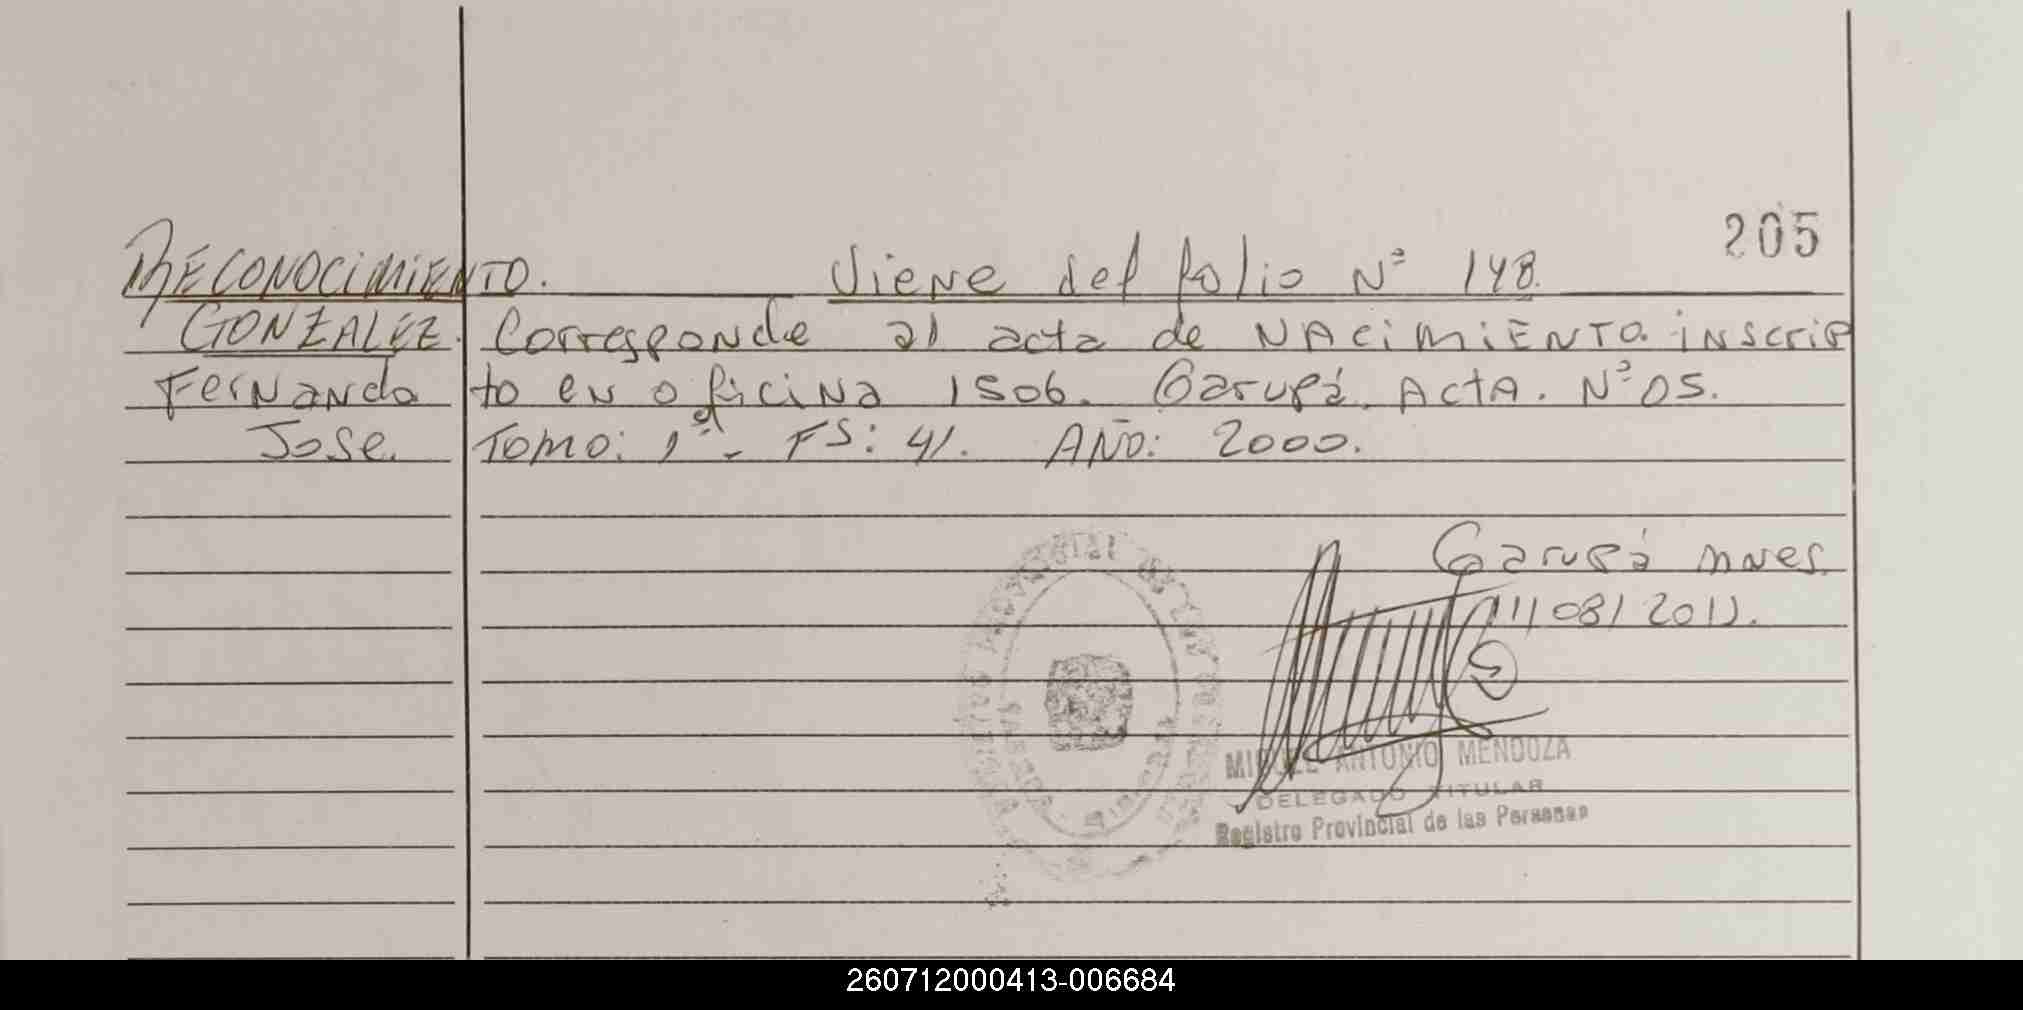 205
RECONOCIMIENTO. Viene del folio Nº 148.
GONZALEZ. Corresponde al acta de NACIMIENTO inscrip
Fernando to en oficina 1506. Garupá. ActA. Nº 05.
Jose. Tomo: 1º - FS: 41. AÑO: 2000.
Garupá mnes.
11/08/2011.
MIGUEL ANTONIO MENDOZA
DELEGADO TITULAR
Registro Provincial de las Personas
260712000413-006684